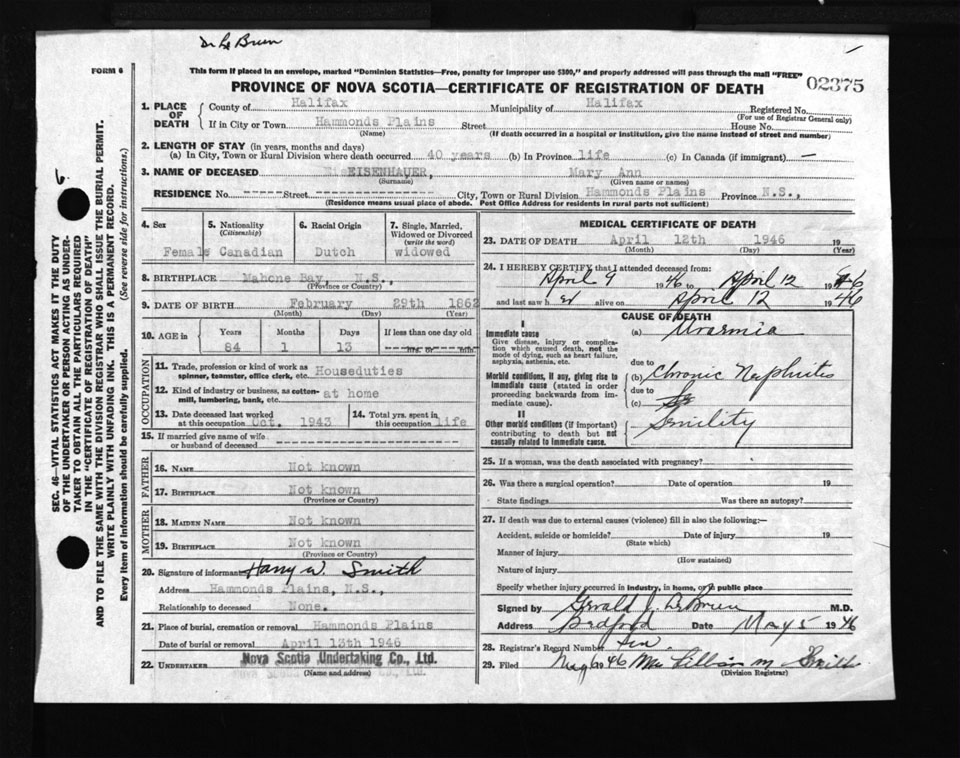 Dr Le Brun
FORM 6
This form if placed in an envelope, marked "Dominion Statistics—Free, penalty for improper use $300," and properly addressed will pass through the mail "FREE"
PROVINCE OF NOVA SCOTIA—CERTIFICATE OF REGISTRATION OF DEATH
02375
1. PLACE OF DEATH
County of Halifax Municipality of Halifax Registered No.
(For use of Registrar General only)
If in City or Town Hammonds Plains Street House No.
(Name) (If death occurred in a hospital or institution, give the name instead of street and number)
2. LENGTH OF STAY (in years, months and days)
(a) In City, Town or Rural Division where death occurred 40 years (b) In Province life (c) In Canada (if immigrant) —
3. NAME OF DECEASED EISENHAUER, Mary Ann
(Surname) (Given name or names)
RESIDENCE No. ------ Street ------ City, Town or Rural Division Hammonds Plains Province N.S.,
(Residence means usual place of abode. Post Office Address for residents in rural parts not sufficient)
4. Sex
Female
5. Nationality
(Citizenship)
Canadian
6. Racial Origin
Dutch
7. Single, Married, Widowed or Divorced
(write the word)
widowed
8. BIRTHPLACE Mahone Bay, N.S.,
(Province or Country)
9. DATE OF BIRTH February 29th 1862
(Month) (Day) (Year)
10. AGE in
Years Months Days If less than one day old
84 1 13 hrs. or min.
OCCUPATION
11. Trade, profession or kind of work as spinner, teamster, office clerk, etc. Houseduties
12. Kind of industry or business, as cotton-mill, lumbering, bank, etc. at home
13. Date deceased last worked at this occupation Oct. 1943
14. Total yrs. spent in this occupation life
15. If married give name of wife or husband of deceased
FATHER
16. NAME Not known
17. BIRTHPLACE Not known
(Province or Country)
MOTHER
18. MAIDEN NAME Not known
19. BIRTHPLACE Not known
(Province or Country)
20. Signature of informant Harry W. Smith
Address Hammonds Plains, N.S.,
Relationship to deceased None.
21. Place of burial, cremation or removal Hammonds Plains
Date of burial or removal April 13th 1946
22. UNDERTAKER Nova Scotia Undertaking Co., Ltd.
(Name and address)
MEDICAL CERTIFICATE OF DEATH
23. DATE OF DEATH April 12th 1946 19
(Month) (Day) (Year)
24. I HEREBY CERTIFY that I attended deceased from:
April 9 1946 to April 12 1946
and last saw h er alive on April 12 1946
CAUSE OF DEATH
I
Immediate cause
Give disease, injury or complication which caused death, not the mode of dying, such as heart failure, asphyxia, asthenia, etc.
(a) Uraemia
due to
Morbid conditions, if any, giving rise to immediate cause (stated in order proceeding backwards from immediate cause).
(b) Chronic Nephritis
due to
(c)
II
Other morbid conditions (if important) contributing to death but not causally related to immediate cause.
Senility
25. If a woman, was the death associated with pregnancy?
26. Was there a surgical operation? Date of operation 19
State findings Was there an autopsy?
27. If death was due to external causes (violence) fill in also the following:—
Accident, suicide or homicide? Date of injury 19
(State which)
Manner of injury
(How sustained)
Nature of injury
Specify whether injury occurred in industry, in home, or public place
Signed by Gerald J. LeBrun M.D.
Address Bedford Date May 5 1946
28. Registrar's Record Number Ten
29. Filed May 1946 Mrs Lillian M Smith
(Division Registrar)
SEC. 46—VITAL STATISTICS ACT MAKES IT THE DUTY
OF THE UNDERTAKER OR PERSON ACTING AS UNDER-
TAKER TO OBTAIN ALL THE PARTICULARS REQUIRED
IN THE "CERTIFICATE OF REGISTRATION OF DEATH"
AND TO FILE THE SAME WITH THE DIVISION REGISTRAR WHO SHALL ISSUE THE BURIAL PERMIT.
WRITE PLAINLY WITH UNFADING INK. THIS IS A PERMANENT RECORD.
Every item of information should be carefully supplied. (See reverse side for instructions.)